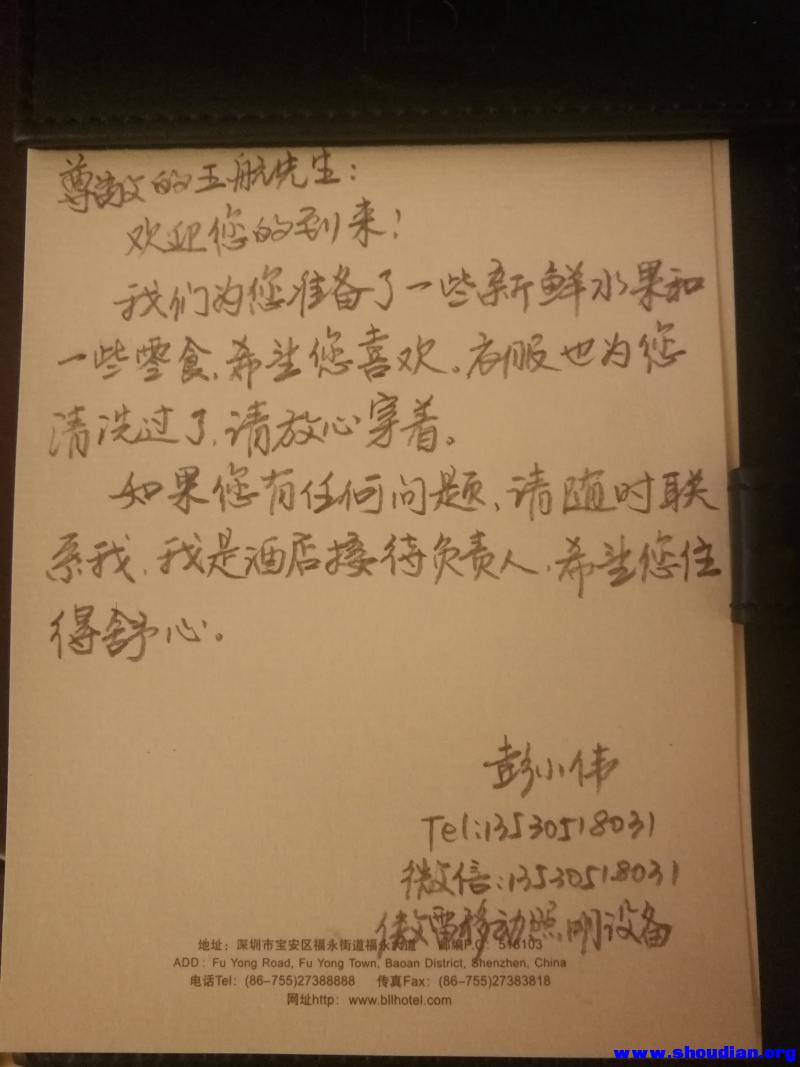 尊敬的王航先生：
欢迎您的到来！
我们为您准备了一些新鲜水果和
一些零食，希望您喜欢。衣服也为您
清洗过了，请放心穿着。
如果您有任何问题，请随时联
系我，我是酒店接待负责人，希望您住
得舒心。
彭小伟
Tel:13530518031
微信:13530518031
傲雷移动照明设备
地址：深圳市宝安区福永街道福永大道 邮编P.C：518103
ADD：Fu Yong Road, Fu Yong Town, Baoan District, Shenzhen, China
电话Tel：(86-755)27388888 传真Fax：(86-755)27383818
网址http：www.bllhotel.com
www.shoudian.org